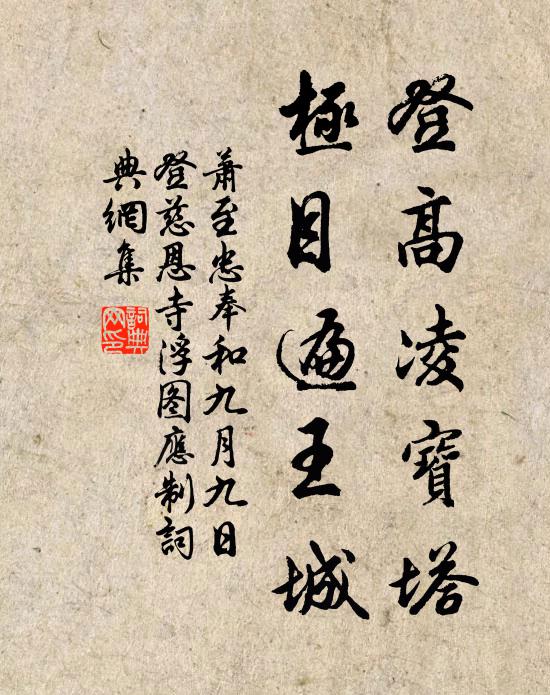 登高凌寶塔
極目遍王城
蕭至忠奉和九月九日
登慈恩寺浮图應制詞
典網集
詞典網印